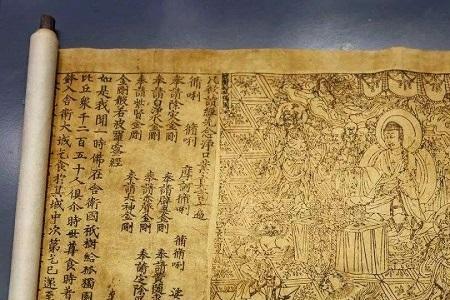 凡欲讀經先念淨口業真言一遍
脩唎 脩唎 摩訶脩唎 脩脩唎 娑
奉請除災金剛 奉請辟毒金剛 奉請黃隨求
奉請白淨水金剛 奉請赤聲金剛 奉請定除災
奉請紫賢金剛 奉請大神金剛
金剛般若波羅蜜經
如是我聞一時佛在舍衛國祇樹給孤獨園
比丘眾千二百五十人俱尒時世尊食時著
鉢入舍衛大城乞食於其城中次第乞已還至